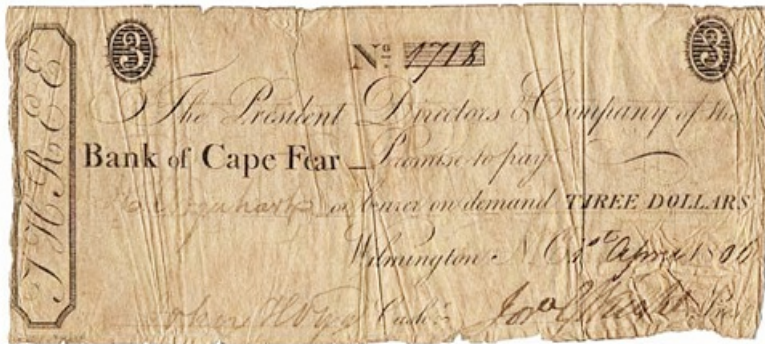 THREE
3 No. 1718 3
The President Directors & Company of the
Bank of Cape Fear Promise to pay
or bearer on demand THREE DOLLARS
Wilmington N. C. 1st April 1806
John Hogg Cashr. Wright Prest